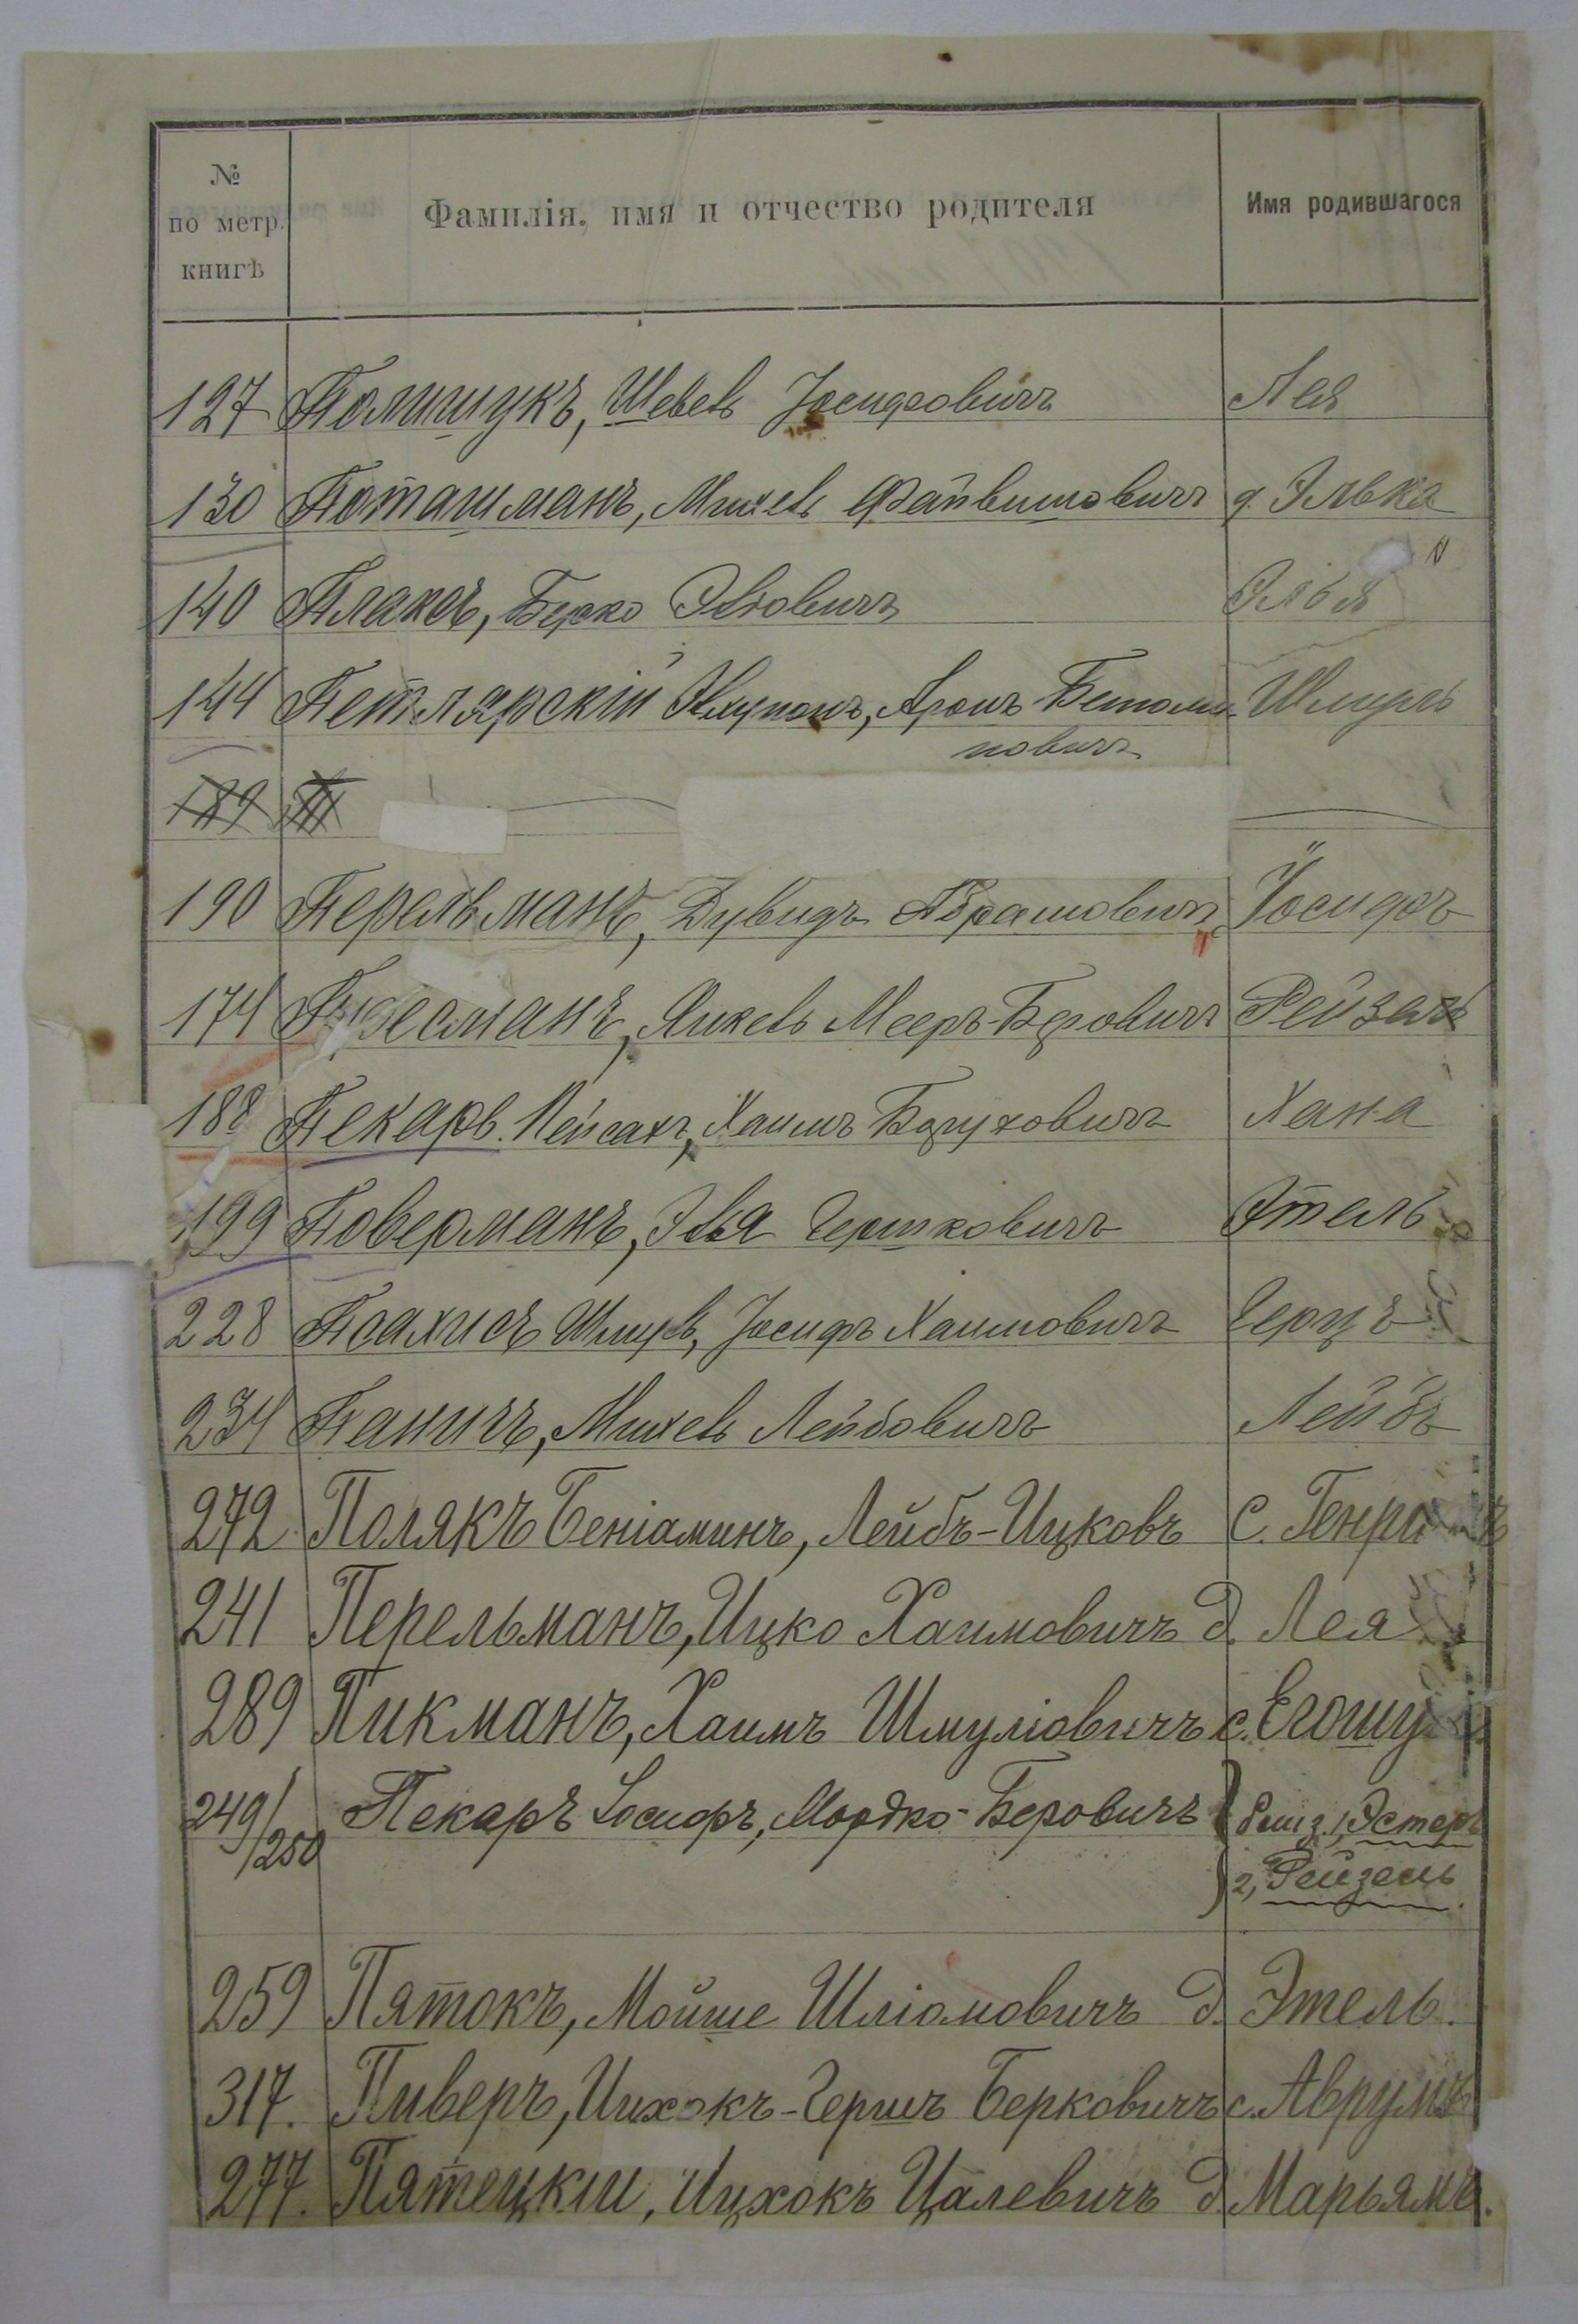 № по метр. книгѣ
Фамилія, имя и отчество родителя
Имя родившагося
127 Полищукъ, Шевель Іосифовичъ Лея
130 Поташманъ, Михель Файвишовичъ д. Элька
140 Плаксъ, Берко Эльовичъ Эльа
144 Петлярскій Аронъ Шмуль
новичъ
189 П
190 Перельманъ, Дувидъ Абрамовичъ Іосифъ
174 Янкель Мееръ-Беровичъ Рейзель
188 Пекарь Пейсахъ, Хаимъ Боруховичъ Хана
199 Поверманъ, Элья Гершковичъ Этель
228 Псахисъ Шмуль, Іосифъ Хаимовичъ Герцъ
234 Паничъ, Михель Лейбовичъ Лейбъ
272 Полякъ Беніаминъ, Лейбъ-Ицковъ с. Генрихъ
241 Перельманъ, Ицко Хаимовичъ д. Лея
289 Пикманъ, Хаимъ Шмуліовичъ с. Егошу
249/250 Пекаръ Іосифъ, Мордко-Беровичъ близ. 1, Эстеръ
2, Рейзель.
259 Пятокъ, Мойше Шліомовичъ д. Этель.
317. Пиверъ, Ицхокъ-Гершъ Берковичъ с. Аврумъ
277. Пятецкій, Ицхокъ Цалевичъ д. Марьямъ.